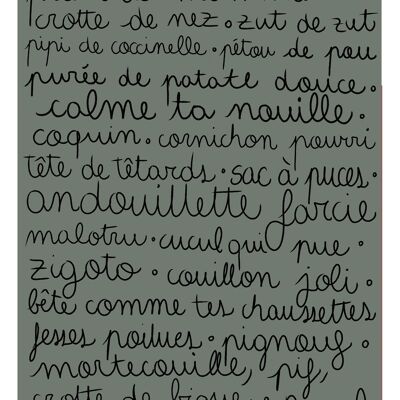 crotte de nez • zut de zut
pipi de coccinelle • pétou de pou
purée de patate douce •
calme ta nouille •
coquin • cornichon pourri
tête de têtards • sac à puces •
andouillette farcie
malotru • cucul qui pue •
zigoto • couillon joli •
bête comme tes chaussettes
fesses poilues • pignouf •
mortecouille, pif,
crotte de